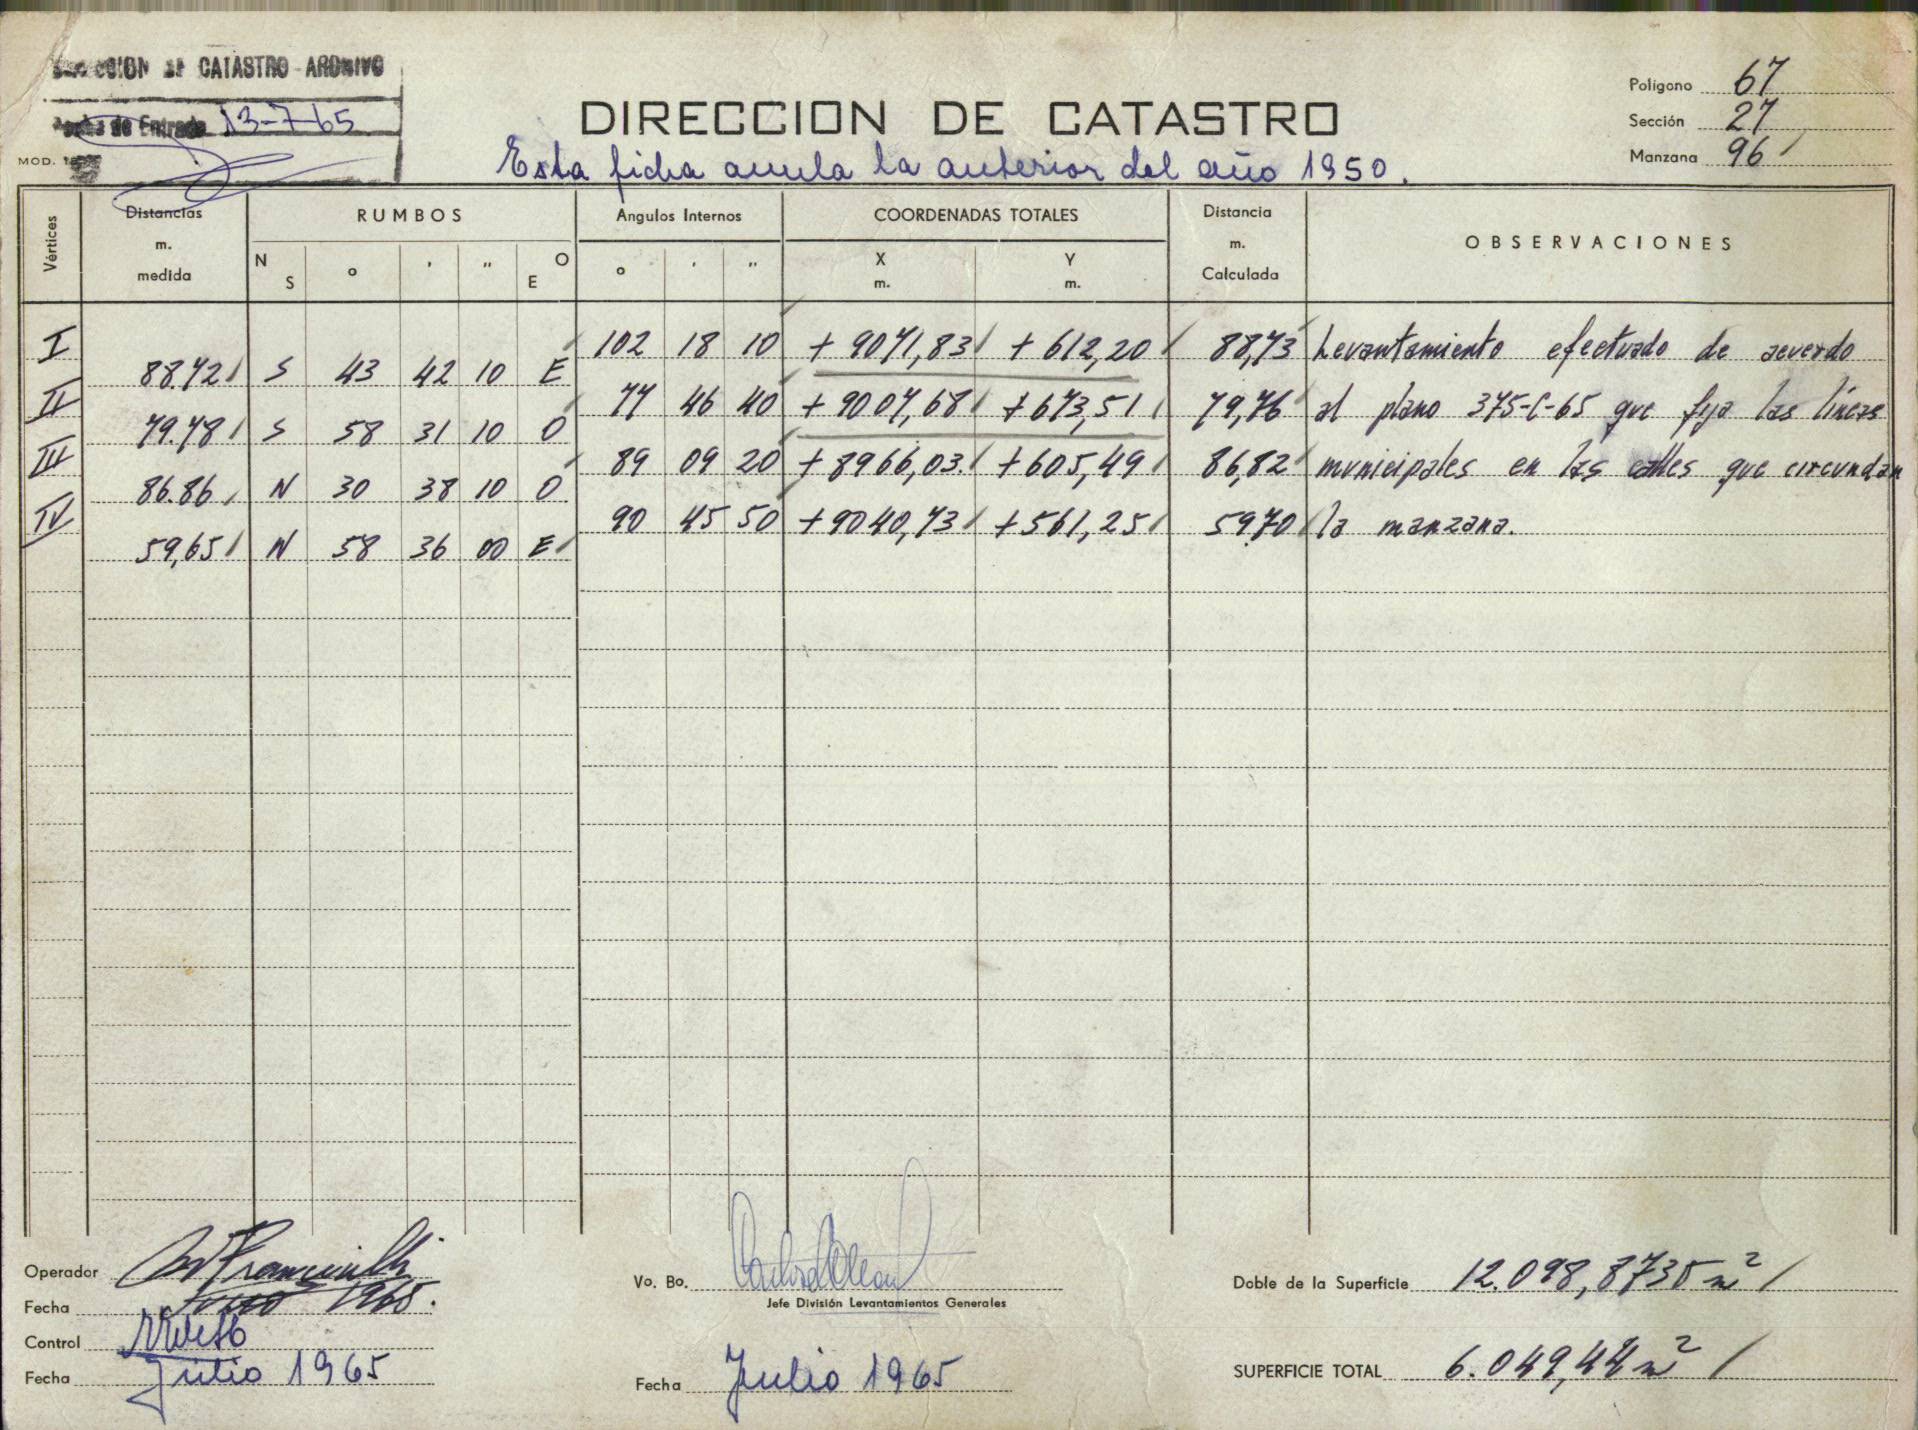 CATASTRO ARCHIVO
Fecha de Entrada 13-7-65
MOD.
DIRECCION DE CATASTRO
Esta ficha anula la anterior del año 1950.
Polígono 67
Sección 27
Manzana 96
Vértices
Distancias m. medida
RUMBOS
N S ° ' " O E
Angulos Internos
° ' "
COORDENADAS TOTALES
X m. Y m.
Distancia m. Calculada
OBSERVACIONES
I 102 18 10 + 9071,83 + 612,20 88,73 Levantamiento efectuado de acuerdo
88.72 S 43 42 10 E
II 77 46 40 + 9007,68 + 673,51 79,76 al plano 375-C-65 que fija las líneas
79.78 S 58 31 10 O
III 89 09 20 + 8966,03. + 605,49 86,82 municipales en las calles que circundan
86.86 N 30 38 10 O
IV 90 45 50 + 9040,73 + 561,25 59.70 la manzana.
59,65 N 58 36 00 E
Operador
Fecha 1965.
Control
Fecha Julio 1965
Vo. Bo.
Jefe División Levantamientos Generales
Fecha Julio 1965
Doble de la Superficie 12.098,8735 m²
SUPERFICIE TOTAL 6.049,44 m²